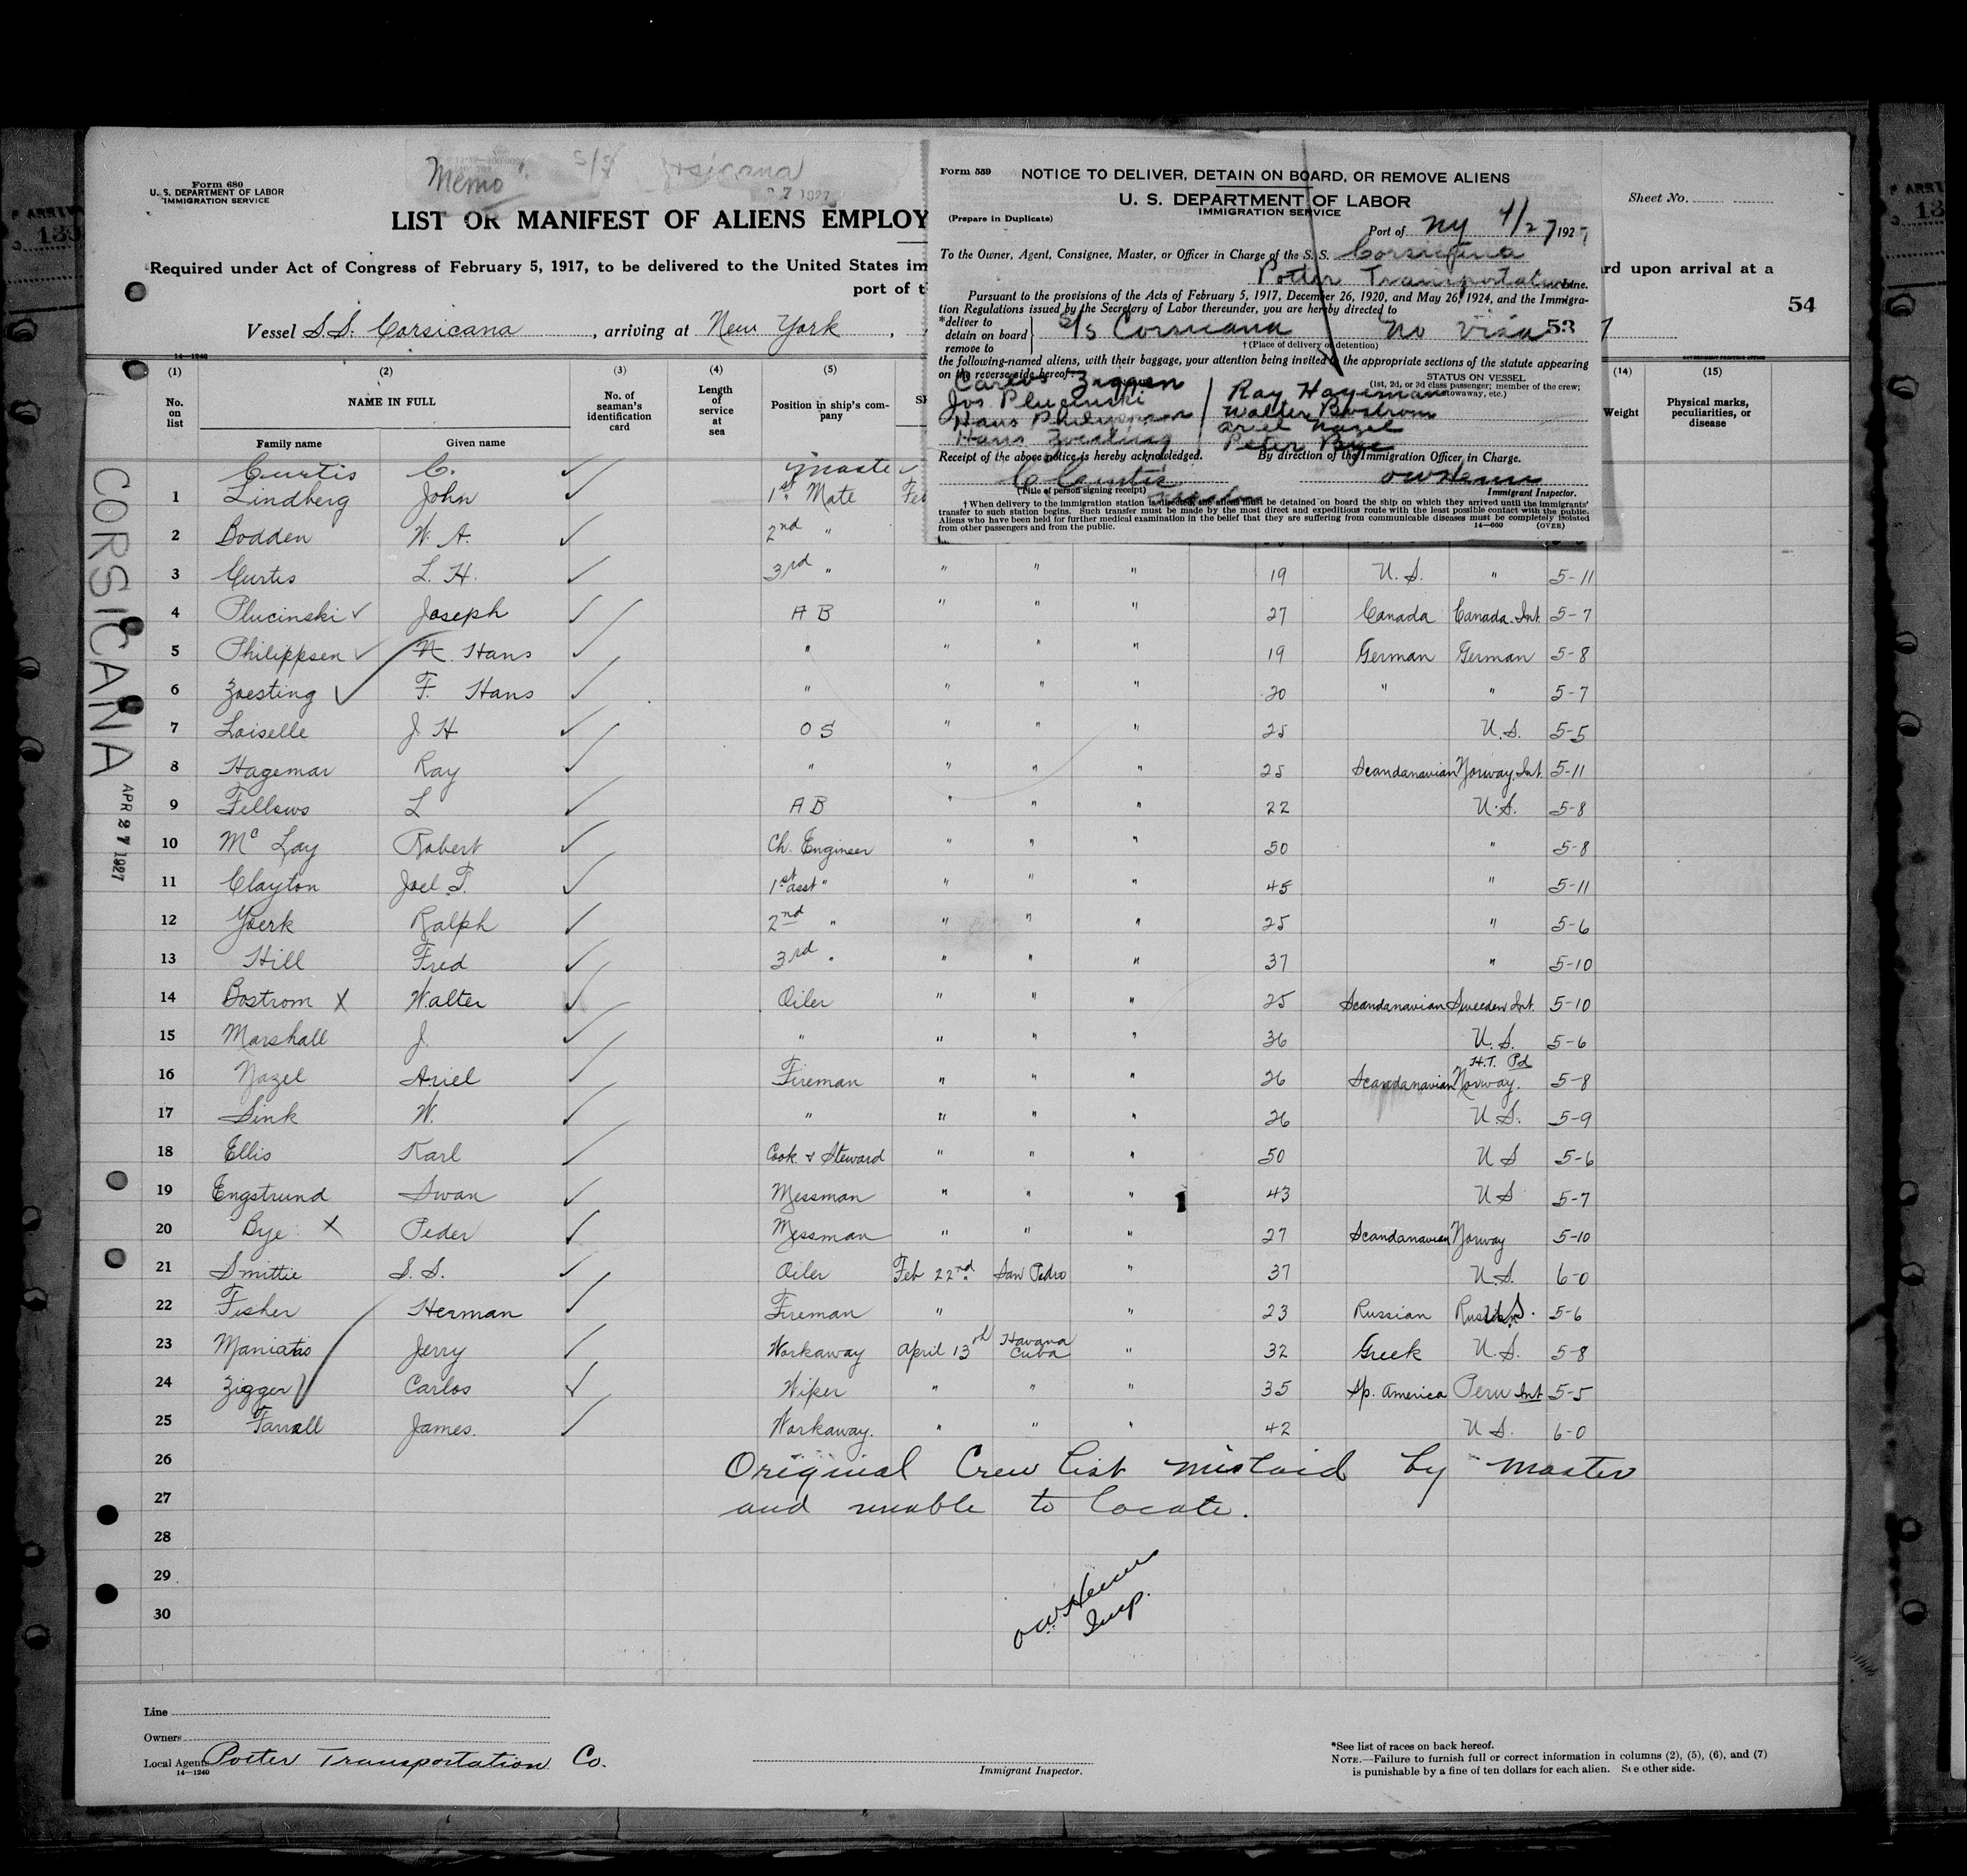 Form 680
U. S. DEPARTMENT OF LABOR
IMMIGRATION SERVICE
Memo
LIST OR MANIFEST OF ALIENS EMPLOY
Required under Act of Congress of February 5, 1917, to be delivered to the United States im
port of t
Vessel S.S. Corsicana, arriving at New York,
Sheet No.
rd upon arrival at a
54
Form 559
NOTICE TO DELIVER, DETAIN ON BOARD, OR REMOVE ALIENS
U. S. DEPARTMENT OF LABOR
IMMIGRATION SERVICE
(Prepare in Duplicate)
Port of NY 4/27 1927
To the Owner, Agent, Consignee, Master, or Officer in Charge of the S. S. Corsicana
Potter Transportation Line.
Pursuant to the provisions of the Acts of February 5, 1917, December 26, 1920, and May 26, 1924, and the Immigra-
tion Regulations issued by the Secretary of Labor thereunder, you are hereby directed to
*deliver to
detain on board
remove to
S/S Corsicana no visa 53
† (Place of delivery or detention)
the following-named aliens, with their baggage, your attention being invited to the appropriate sections of the statute appearing
on the reverse side hereof.
STATUS ON VESSEL
(1st, 2d, or 3d class passenger; member of the crew;
stowaway, etc.)
Carlos Ziggen Ray Hageman
Jos Plucinski Walter Bostrom
Hans Philippsen Ariel Nazel
Hans Zoesting Peter Bye
Receipt of the above notice is hereby acknowledged. By direction of the Immigration Officer in Charge.
C Curtis
(Title of person signing receipt)
Immigrant Inspector.
† When delivery to the immigration station is directed, the aliens must be detained on board the ship on which they arrived until the immigrants'
transfer to such station begins. Such transfer must be made by the most direct and expeditious route with the least possible contact with the public.
Aliens who have been held for further medical examination in the belief that they are suffering from communicable diseases must be completely isolated
from other passengers and from the public.
14—660 (OVER)
14—1240
(1) (2) (3) (4) (5) (14) (15)
No. on list
NAME IN FULL
Family name Given name
No. of seaman's identification card
Length of service at sea
Position in ship's com-pany
Weight
Physical marks, peculiarities, or disease
CORSICANA
APR 27 1927
Curtis C. master
1 Lindberg John 1st Mate Feb
2 Bodden W. A. 2nd "
3 Curtis L. H. 3rd " " " " 19 U. S. " 5-11
4 Plucinski Joseph A B " " " 27 Canada Canada. Int. 5-7
5 Philippsen N. Hans " " " " 19 German German 5-8
6 Zoesting F. Hans " " " " 20 " " 5-7
7 Loiselle J. H O S " " " 25 U. S. 5-5
8 Hagemar Ray " " " " 25 Scandanavian Norway. Int. 5-11
9 Fellows L A B " " " 22 U. S. 5-8
10 Mc Lay Robert Ch. Engineer " " " 50 " 5-8
11 Clayton Joel T. 1st asst " " " " 45 " 5-11
12 Yoerk Ralph 2nd " " " " 25 " 5-6
13 Hill Fred 3rd " " " " 37 " 5-10
14 Bostrom X Walter Oiler " " " 25 Scandanavian Sweeden Int. 5-10
15 Marshall J. " " " " 36 U. S. 5-6
H.T. Pd
16 Nazel Ariel Fireman " " " 26 Scandanavian Norway. 5-8
17 Sink W. " " " " 26 U S. 5-9
18 Ellis Karl Cook & Steward " " " 50 U S 5-6
19 Engstrund Swan Messman " " " 43 U S 5-7
20 Bye X Peder Messman " " " 27 Scandanavian Norway 5-10
21 Smittie S. S. Oiler Feb 22nd San Pedro " 37 U. S. 6-0
22 Fisher Herman Fireman " " 23 Russian U. S. 5-6
23 Maniatis Jerry Workaway April 13th Havana Cuba " 32 Greek U. S. 5-8
24 Zigger Carlos Wiper " " " 35 Sp. America Peru Int 5-5
25 Farrall James. Workaway. " " " 42 U S. 6-0
26 Original Crew list mislaid by master
27 and unable to locate.
28
29
30
Insp.
Line
Owners
Local Agents Potter Transportation Co.
14—1240
Immigrant Inspector.
*See list of races on back hereof.
NOTE.—Failure to furnish full or correct information in columns (2), (5), (6), and (7)
is punishable by a fine of ten dollars for each alien. See other side.